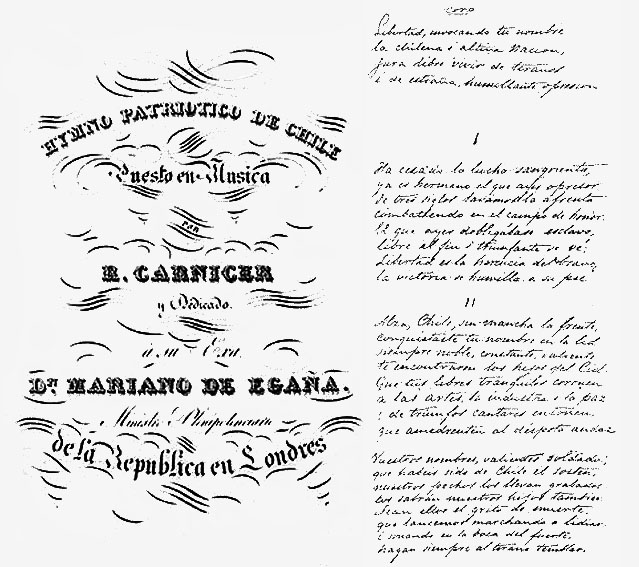 HYMNO PATRIOTICO DE CHILE
Puesto en Musica
por
R. CARNICER
y Dedicado.
á su Exa.
Dn. MARIANO DE EGAÑA.
Ministro Plenipotenciario
de la Republica en Londres
Coro
Libertad, invocando tu nombre
la chilena i altiva Nacion,
jura libre vivir de tiranos
i de estraña, humillante opresion
I
Ha cesado la lucha sangrienta,
ya es hermano el que ayer opresor
de tres siglos lavamos la afrenta
combattiendo en el campo de honor.
El que ayer doblegábase esclavo,
libre al fin i triunfante se vé;
Libertad es la herencia del bravo,
la victoria se humilla a su pié
II
Alza, Chile, sin mancha la frente,
conquistaste tu nombre en la lid
siempre noble, constante, valiente
te encontraron los hijos del Cid.
Que tus libres tranquilos coronen
a las artes, la industria i la paz
i de triunfos cantares entonen
que amedrenten al déspota audaz
Vuestros nombres, valientes soldados,
que habeis sido de Chile el sosten,
nuestros pechos los llevan grabados
los sabrán nuestros hijos tambien.
Sean ellos el grito de muerte,
que lancemos marchando a lidiar
i sonando en la boca del fuerte,
hagan siempre al tirano temblar.